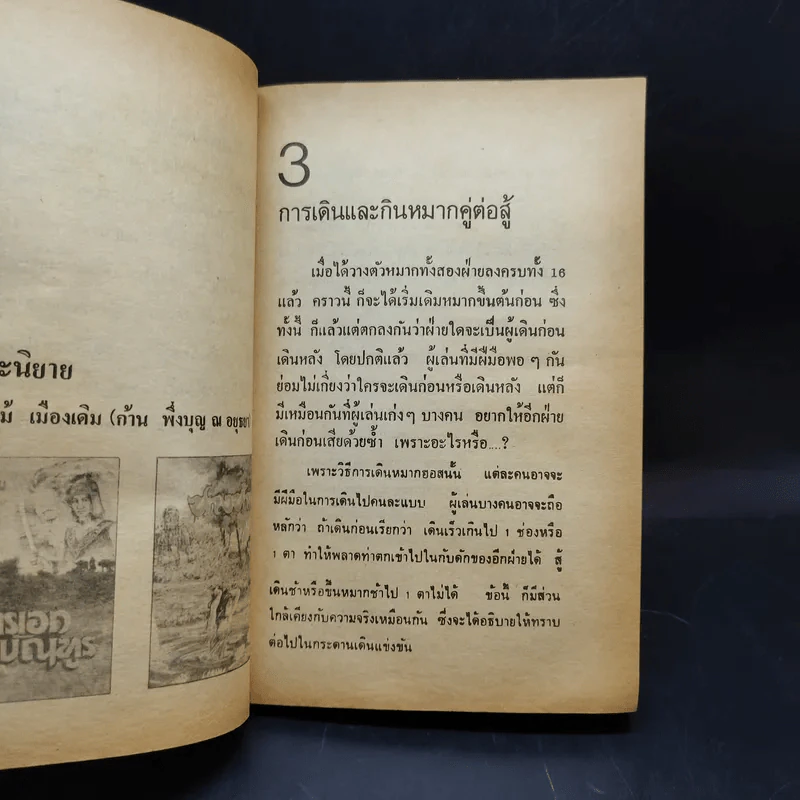 ะนิยาย
ม้ เมืองเดิม (ก้าน พึ่งบุญ ณ อยุธยา
3
การเดินและกินหมากคู่ต่อสู้
เมื่อได้วางตัวหมากทั้งสองฝ่ายลงครบทั้ง 16
แล้ว คราวนี้ ก็จะได้เริ่มเดิมหมากขึ้นต้นก่อน ซึ่ง
ทั้งนี้ ก็แล้วแต่ตกลงกันว่าฝ่ายใดจะเป็นผู้เดินก่อน
เดินหลัง โดยปกติแล้ว ผู้เล่นที่มีฝีมือพอ ๆ กัน
ย่อมไม่เกี่ยงว่าใครจะเดินก่อนหรือเดินหลัง แต่ก็
มีเหมือนกันที่ผู้เล่นเก่งๆ บางคน อยากให้อีกฝ่าย
เดินก่อนเสียด้วยซ้ำ เพราะอะไรหรือ....?
เพราะวิธีการเดินหมากฮอสนั้น แต่ละคนอาจจะ
มีฝีมือในการเดินไปคนละแบบ ผู้เล่นบางคนอาจจะถือ
หลักว่า ถ้าเดินก่อนเรียกว่า เดินเร็วเกินไป 1 ช่องหรือ
1 ตา ทำให้พลาดท่าตกเข้าไปในกับดักของอีกฝ่ายได้ สู้
เดินช้าหรือขึ้นหมากช้าไป 1 ตาไม่ได้ ข้อนี้ ก็มีส่วน
ใกล้เคียงกับความจริงเหมือนกัน ซึ่งจะได้อธิบายให้ทราบ
ต่อไปในกระดานเดินแข่งขัน